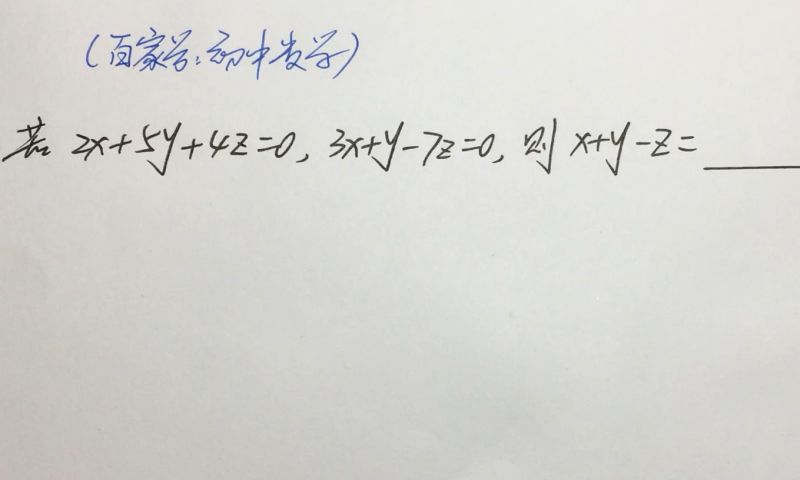 (百家号:初中数学)
若 2x+5y+4z=0, 3x+y-7z=0, 则 x+y-z=____